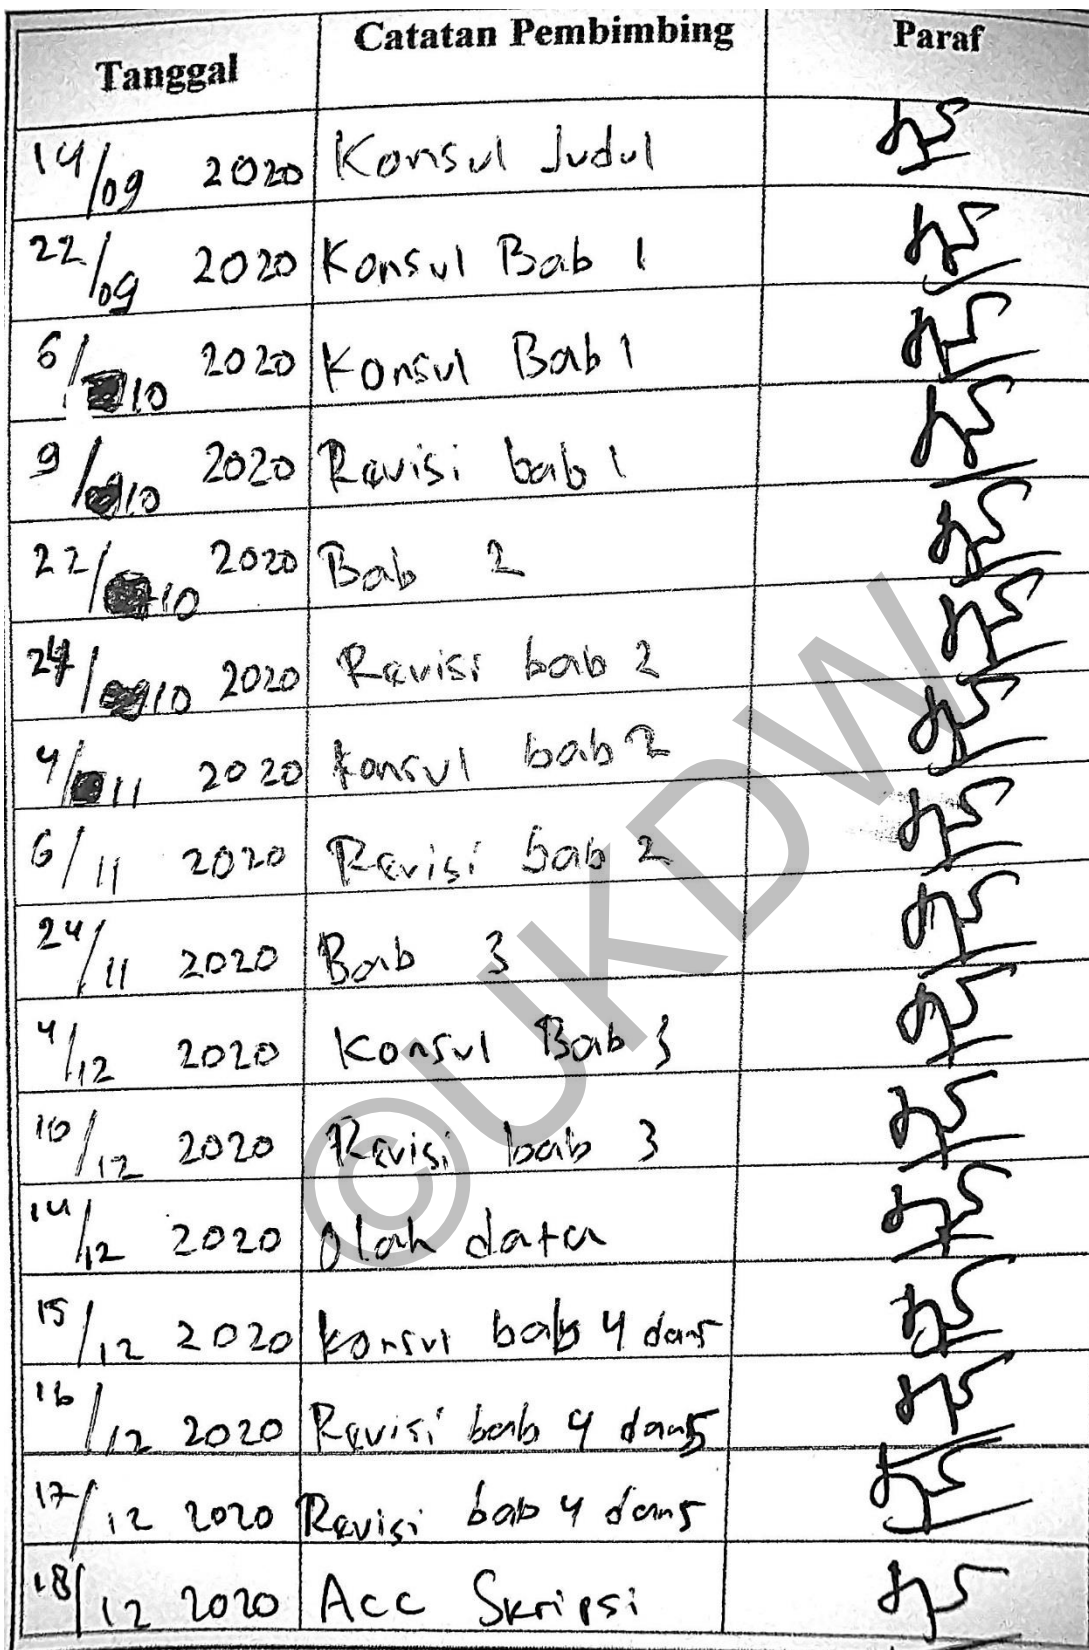 Tanggal Catatan Pembimbing Paraf
14/09 2020 Konsul Judul
22/09 2020 Konsul Bab 1
6/10 2020 Konsul Bab 1
9/10 2020 Revisi bab 1
22/10 2020 Bab 2
24/10 2020 Revisi bab 2
4/11 2020 konsul bab 2
6/11 2020 Revisi bab 2
24/11 2020 Bab 3
4/12 2020 Konsul Bab 3
10/12 2020 Revisi bab 3
14/12 2020 Olah data
15/12 2020 konsul bab 4 dan 5
16/12 2020 Revisi bab 4 dan 5
17/12 2020 Revisi bab 4 dan 5
18/12 2020 Acc Skripsi
©UKDW